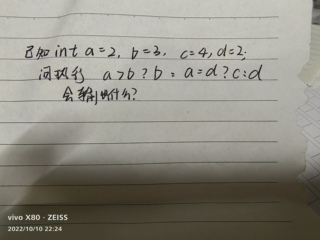 已知 int a=2, b=3, c=4, d=2;
问执行 a>b?b:a=d?c:d
会输出什么?
vivo X80 · ZEISS
2022/10/10 22:24